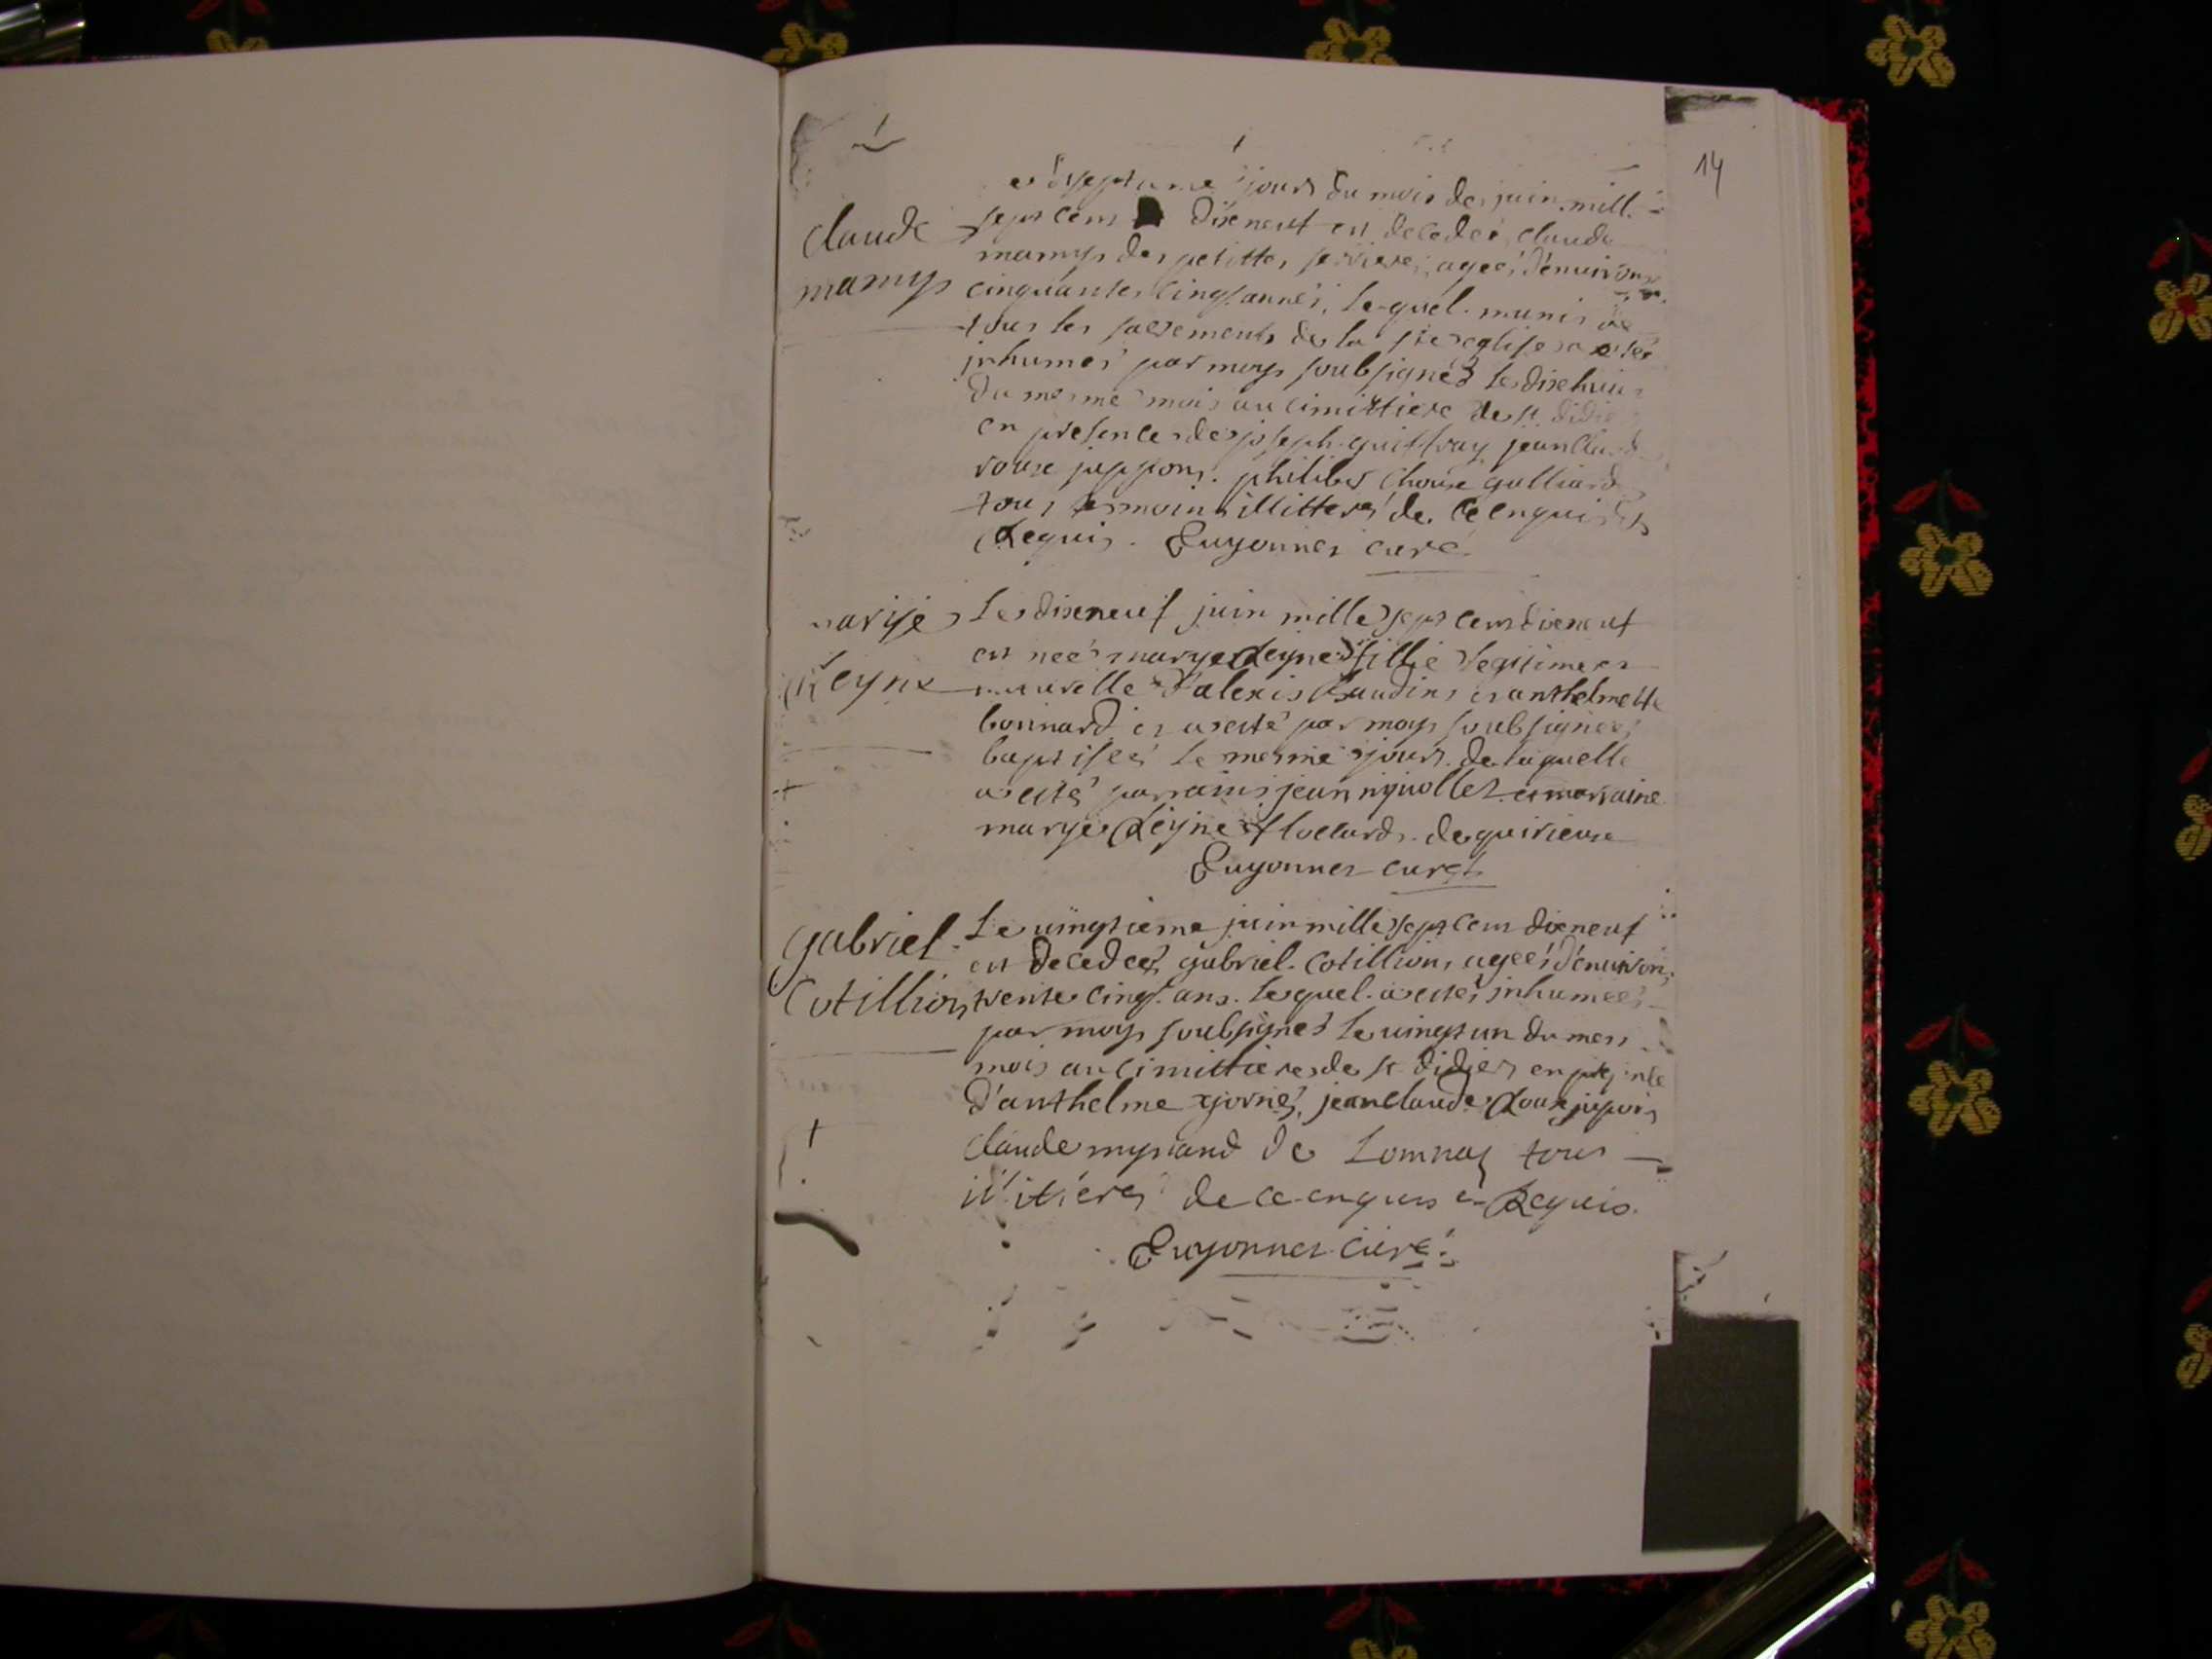 14
jour du mois de juin mill
claude
mamy
sept cens disneuf est decedé claude
mamy des petittes serrieres, ageé d'enuiron
cinquante cinq années, lequel munis de
tous les sacrements de la ste eglise a esté
inhumé par moy soubsigné le dixhuit
du mesme mois au cimittiere de st didie
en presence de joseph guiffray jean claud
roux juppon. philiber choux galliard
tous temoins illitteré de ce enquis et
Requis. Guyonnet curé
marye
Reyne
Le dixneuf juin mille sept cens dixneuf
est neé marye Reyne fillie legitime et
naturelle d'alexis Baudin et anthelmette
bonnard et a esté par moy soubsigneé
baptiseé le mesme jour. de laquelle
a esté parrain jean niuollet et marraine
marye Reyne flocard de quirieux
Guyonnet curet
gabriel
Cotillion
Le uingtieme juin mille sept cens dixneuf
est decedeé gabriel Cotillion ageé d'enuiron
trente cinq ans. lequel a esté inhumeé
par moy soubsigné le uingt un du mes
mois au cimittiere de st didier en presence
d'anthelme gorné, jean claude Roux jupon
claude mynand de Lomnaz tous
illitieré de ce enquis et Requis.
Guyonnet curé